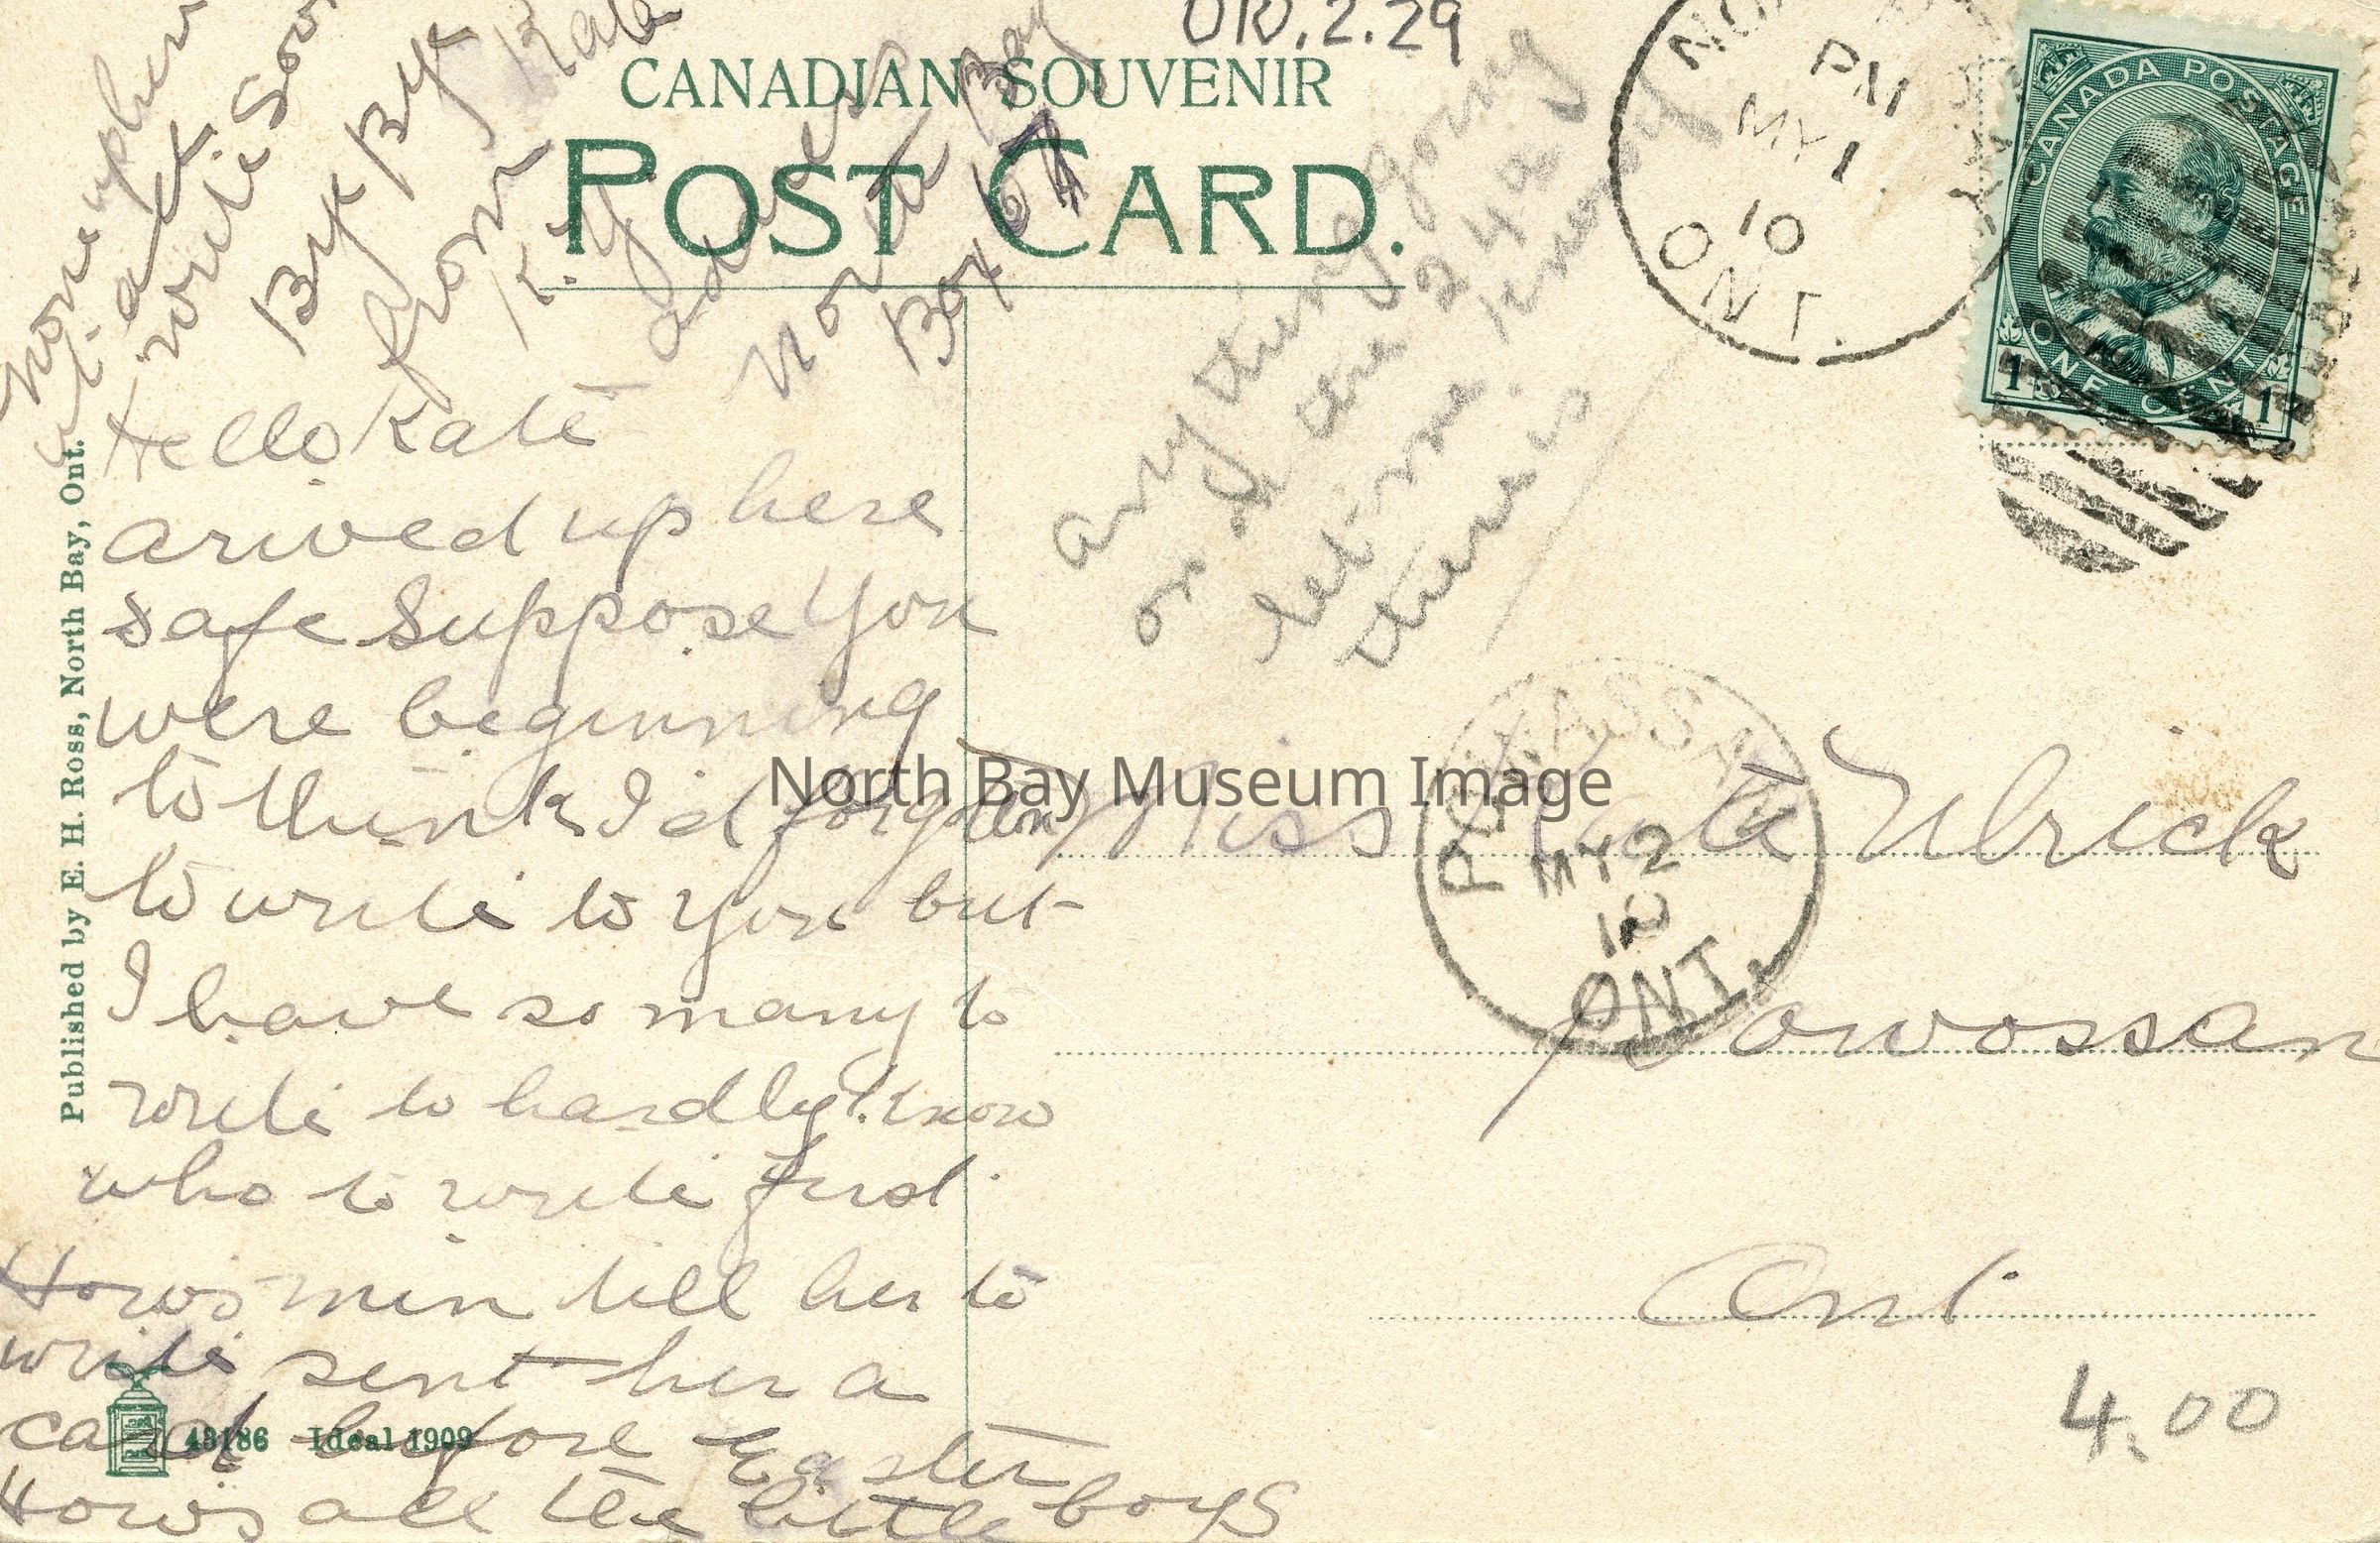 OR.2.29
CANADIAN SOUVENIR
POST CARD.
NO
PM
MY 1
10
ONT.
CANADA POSTAGE
ONE CENT
1 1
Hello Kate
arived up here
safe Suppose You
were beginning
to think I'd forgotten
to write to You but
I have so many to
write to hardly know
who to write first.
Hows min tell her to
write sent her a
card before Easter
Hows all the little boys
up here
at
write Soon
Bye Bye Kate
from
K.Y
address
North Bay
Box 67
any thing going
on
let me know if
there is
Miss Kate Ulrick
Powossan
Ont.
POWASSAN
MY 2
10
ONT.
4.00
Published by E. H. Ross, North Bay, Ont.
48186 Ideal 1909
North Bay Museum Image